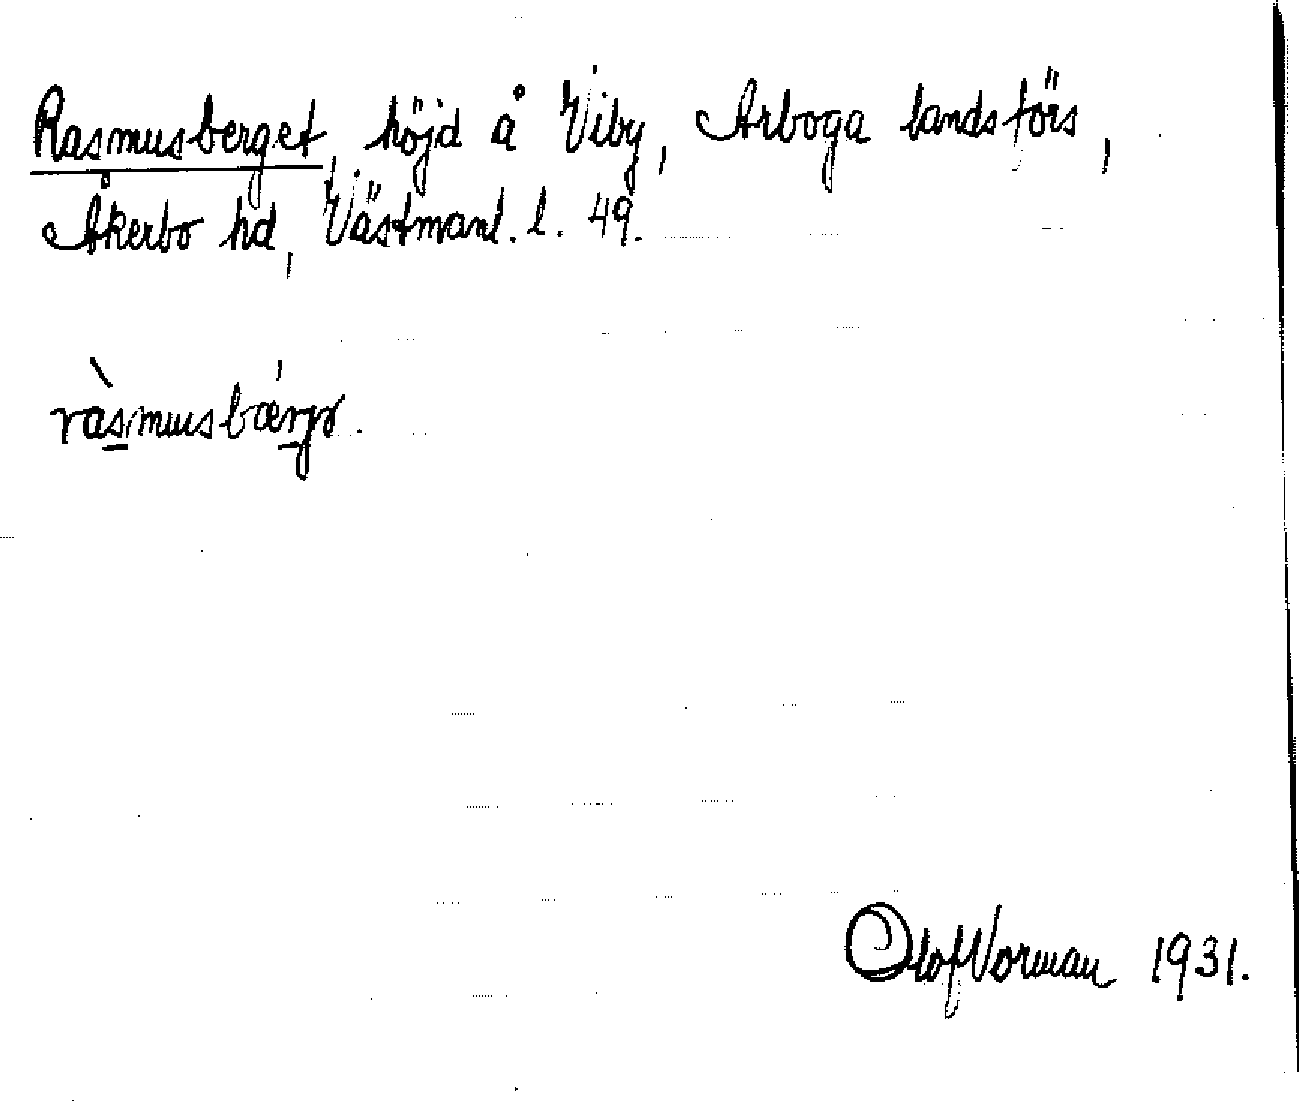 Rasmusberget, höjd å Viby, Arboga landsförs,
Åkerbo hd, Västmanl. l. 49.
ràsmusbárjə.
Olof Norman 1931.